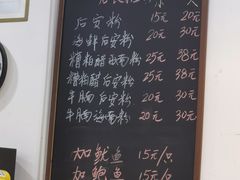 后安粉 15元 20元
海鲜后安粉 20元 30元
糟粕醋海南粉 25元 38元
糟粕醋后安粉 25元 38元
牛腩后安粉 20元 30元
牛腩海南粉 20元 30元
加鱿鱼 15元/只
加鲍鱼 15元/只